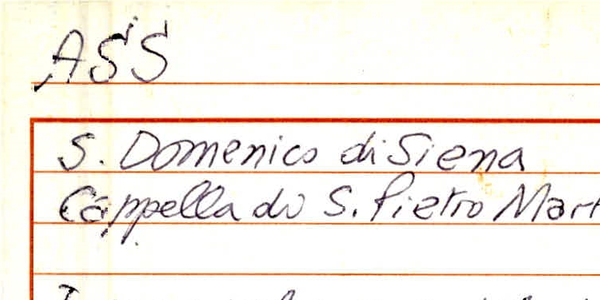 ASS
S. Domenico di Siena
Cappella di S. Pietro Mart